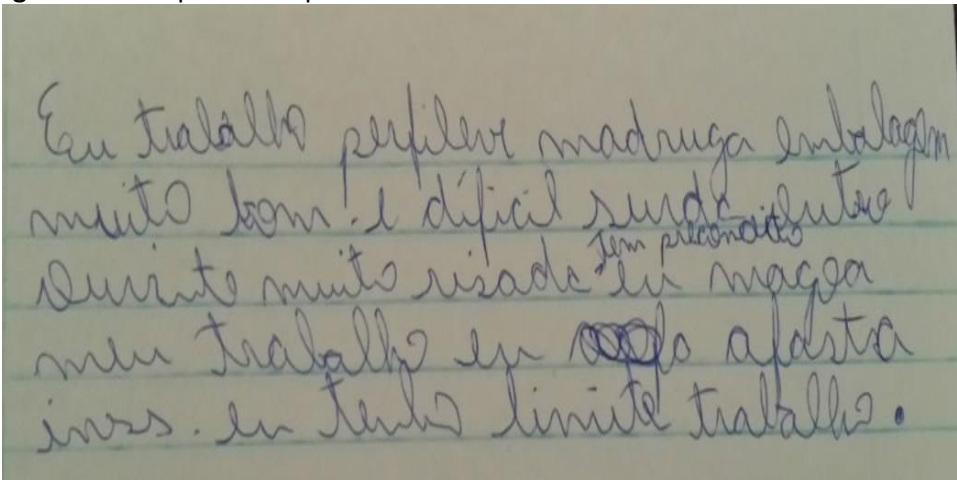 Eu trabalho perfileve madruga embalagem
muito bom. e difícil surdo outro
ouvinte muito risada tem preconceito eu magoa
meu trabalho eu afasta
inss. eu tenho limite trabalho.